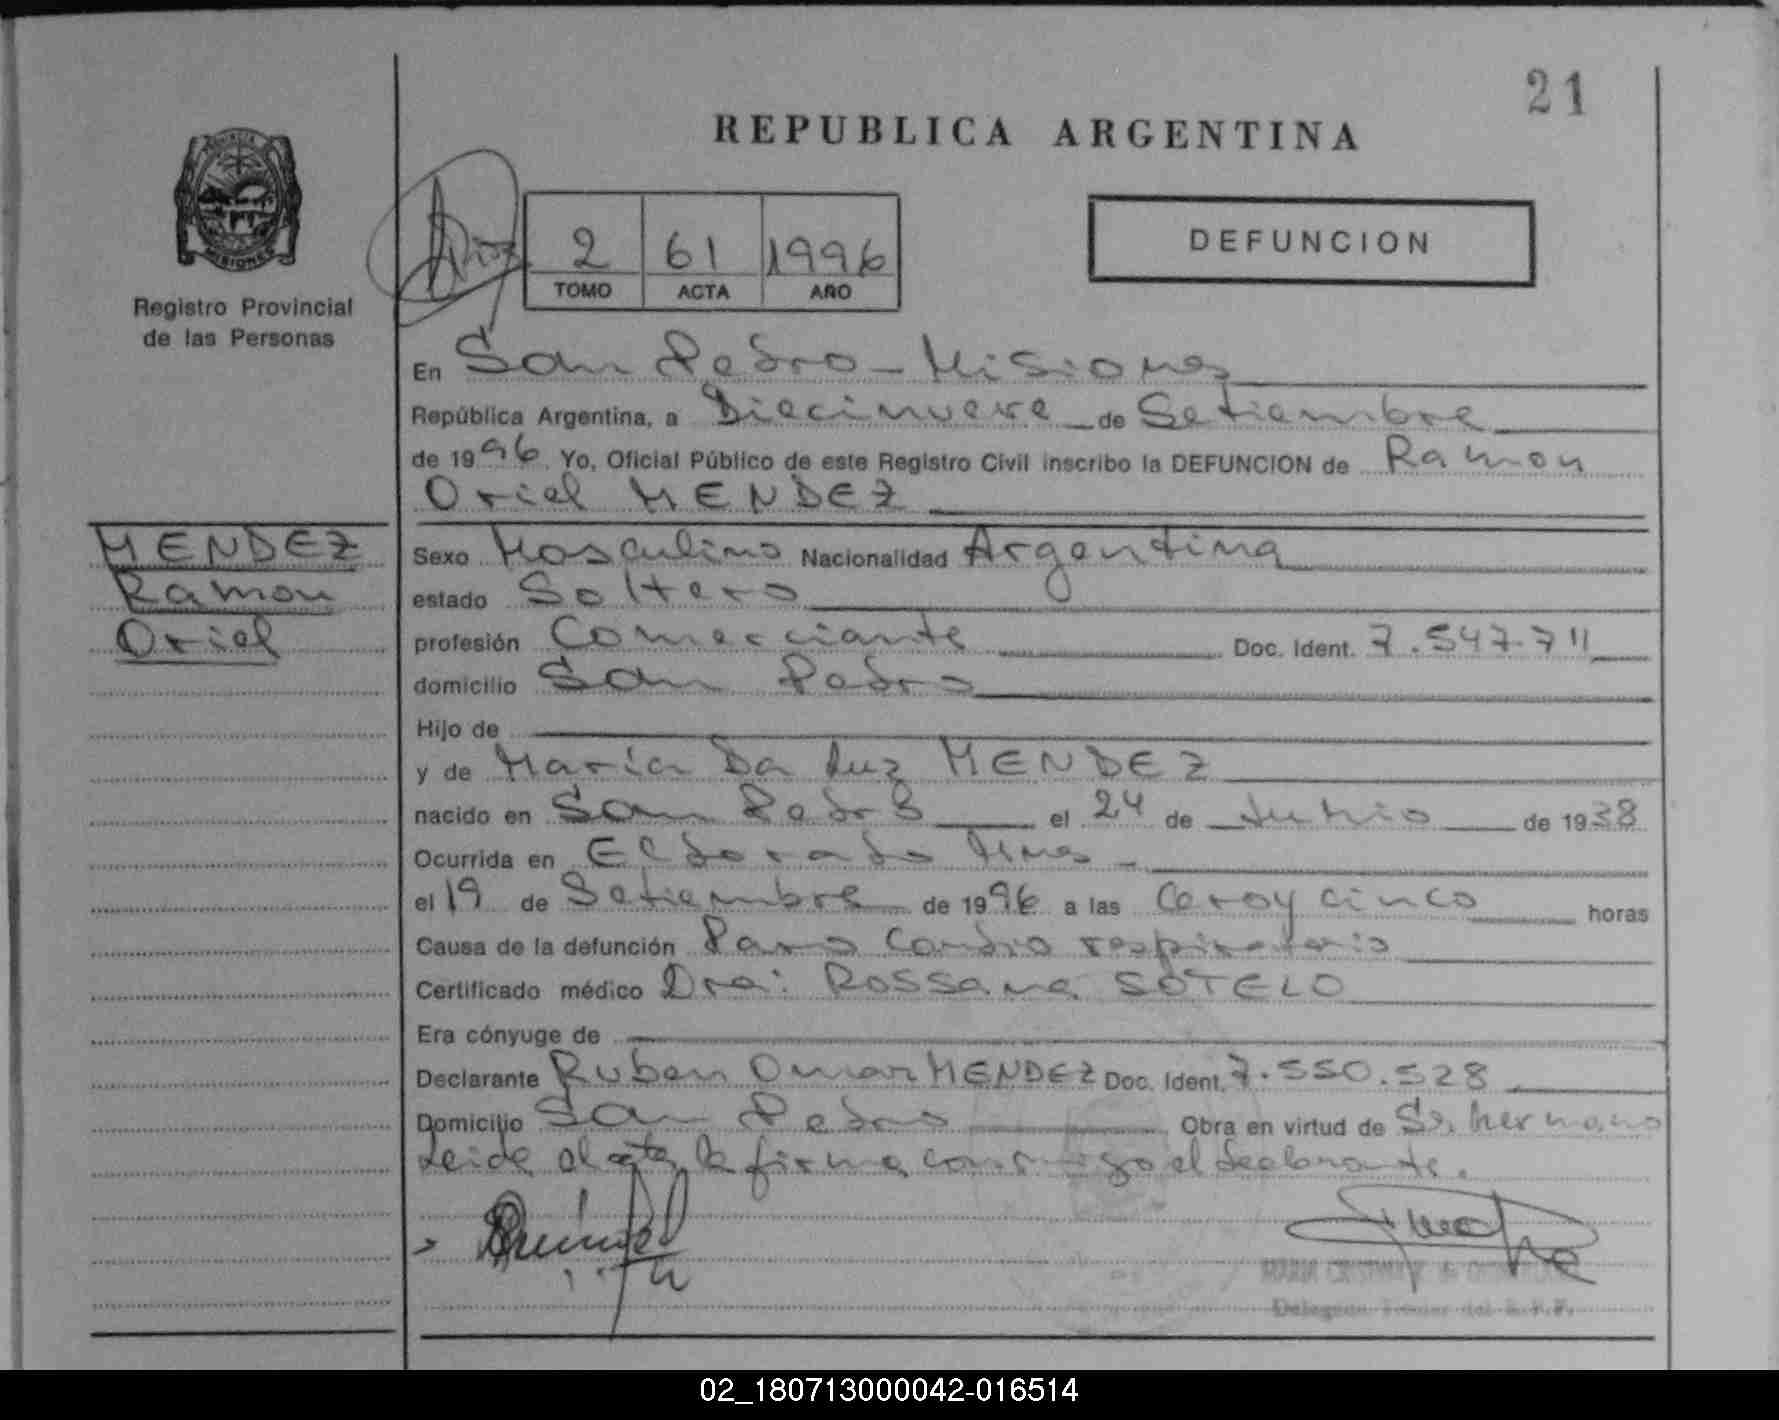 21
REPUBLICA ARGENTINA
MISIONES
Registro Provincial
de las Personas
2 61 1996
TOMO ACTA AÑO
DEFUNCION
En San Pedro - Misiones
República Argentina, a Diecinueve de Setiembre
de 1996. Yo, Oficial Público de este Registro Civil inscribo la DEFUNCION de Ramon
Oriel MENDEZ
MENDEZ
Ramon
Oriel
Sexo Masculino Nacionalidad Argentina
estado Soltero
profesión Comerciante Doc. Ident. 7.547.711
domicilio San Pedro
Hijo de
y de María Da Luz MENDEZ
nacido en San Pedro el 24 de de 1938
Ocurrida en Eldorado Mnes -
el 19 de Setiembre de 1996 a las Cero y cinco horas
Causa de la defunción Paro Cardio respiratorio
Certificado médico Dra: Rossana SOTELO
Era cónyuge de
Declarante Ruben Omar MENDEZ Doc. Ident. 7.550.528
Domicilio San Pedro Obra en virtud de Ser hermano
Leida el acta la firma conmigo el declarante.
02_180713000042-016514